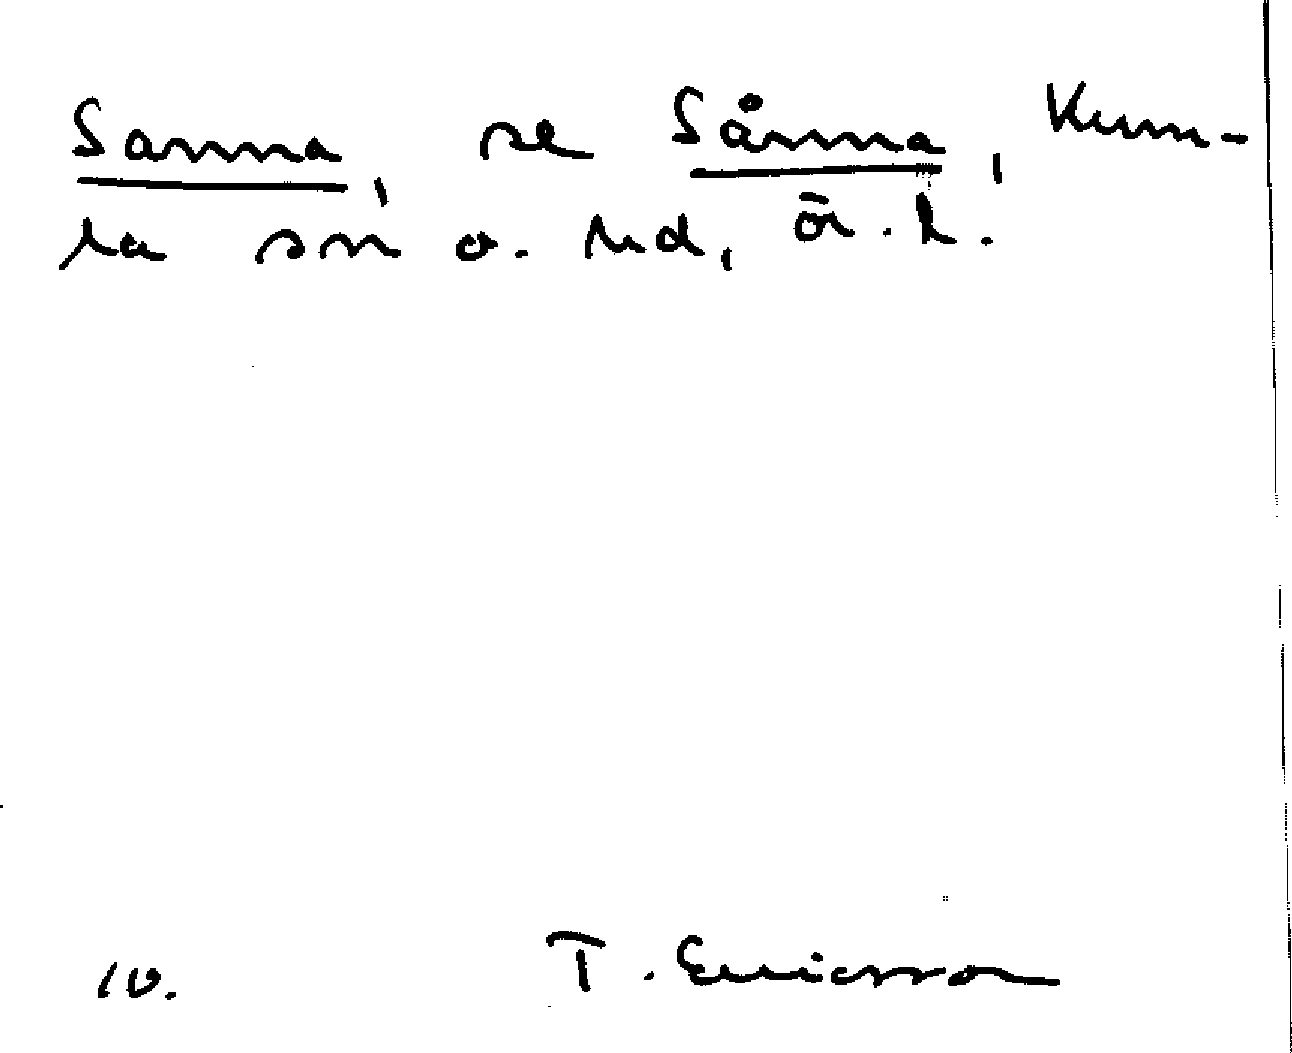 Sanna, se Sånna, Kum-
la sn o. hd, Ör. l.
10. T. Ericsson